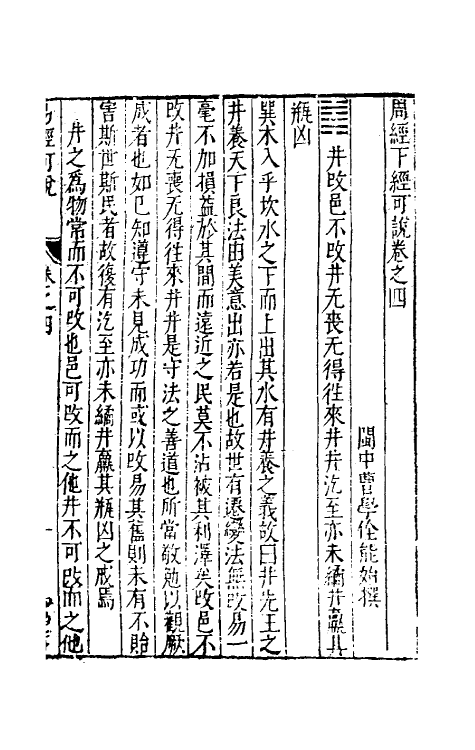 周經下經可說卷之四
閩中曹學佺能始撰
䷯井改邑不改井无喪无得徃來井井汔至亦未繘井羸其
瓶凶
巽木入乎坎水之下而上出其水有井養之義故曰井先王之
井養天下良法由美意出亦若是也故世有遷變法無改易一
毫不加損益於其間而遠近之民莫不沾被其利澤矣改邑不
改井无喪无得徃來井井是守法之善道也所當敬勉以觀厥
成者也如已知遵守未見成功而或以改易其舊則未有不貽
害斯世斯民者故復有汔至亦未繘井羸其瓶凶之戒焉
井之為物常而不可改也邑可改而之他井不可改而之他
易經可說
卷之四
一